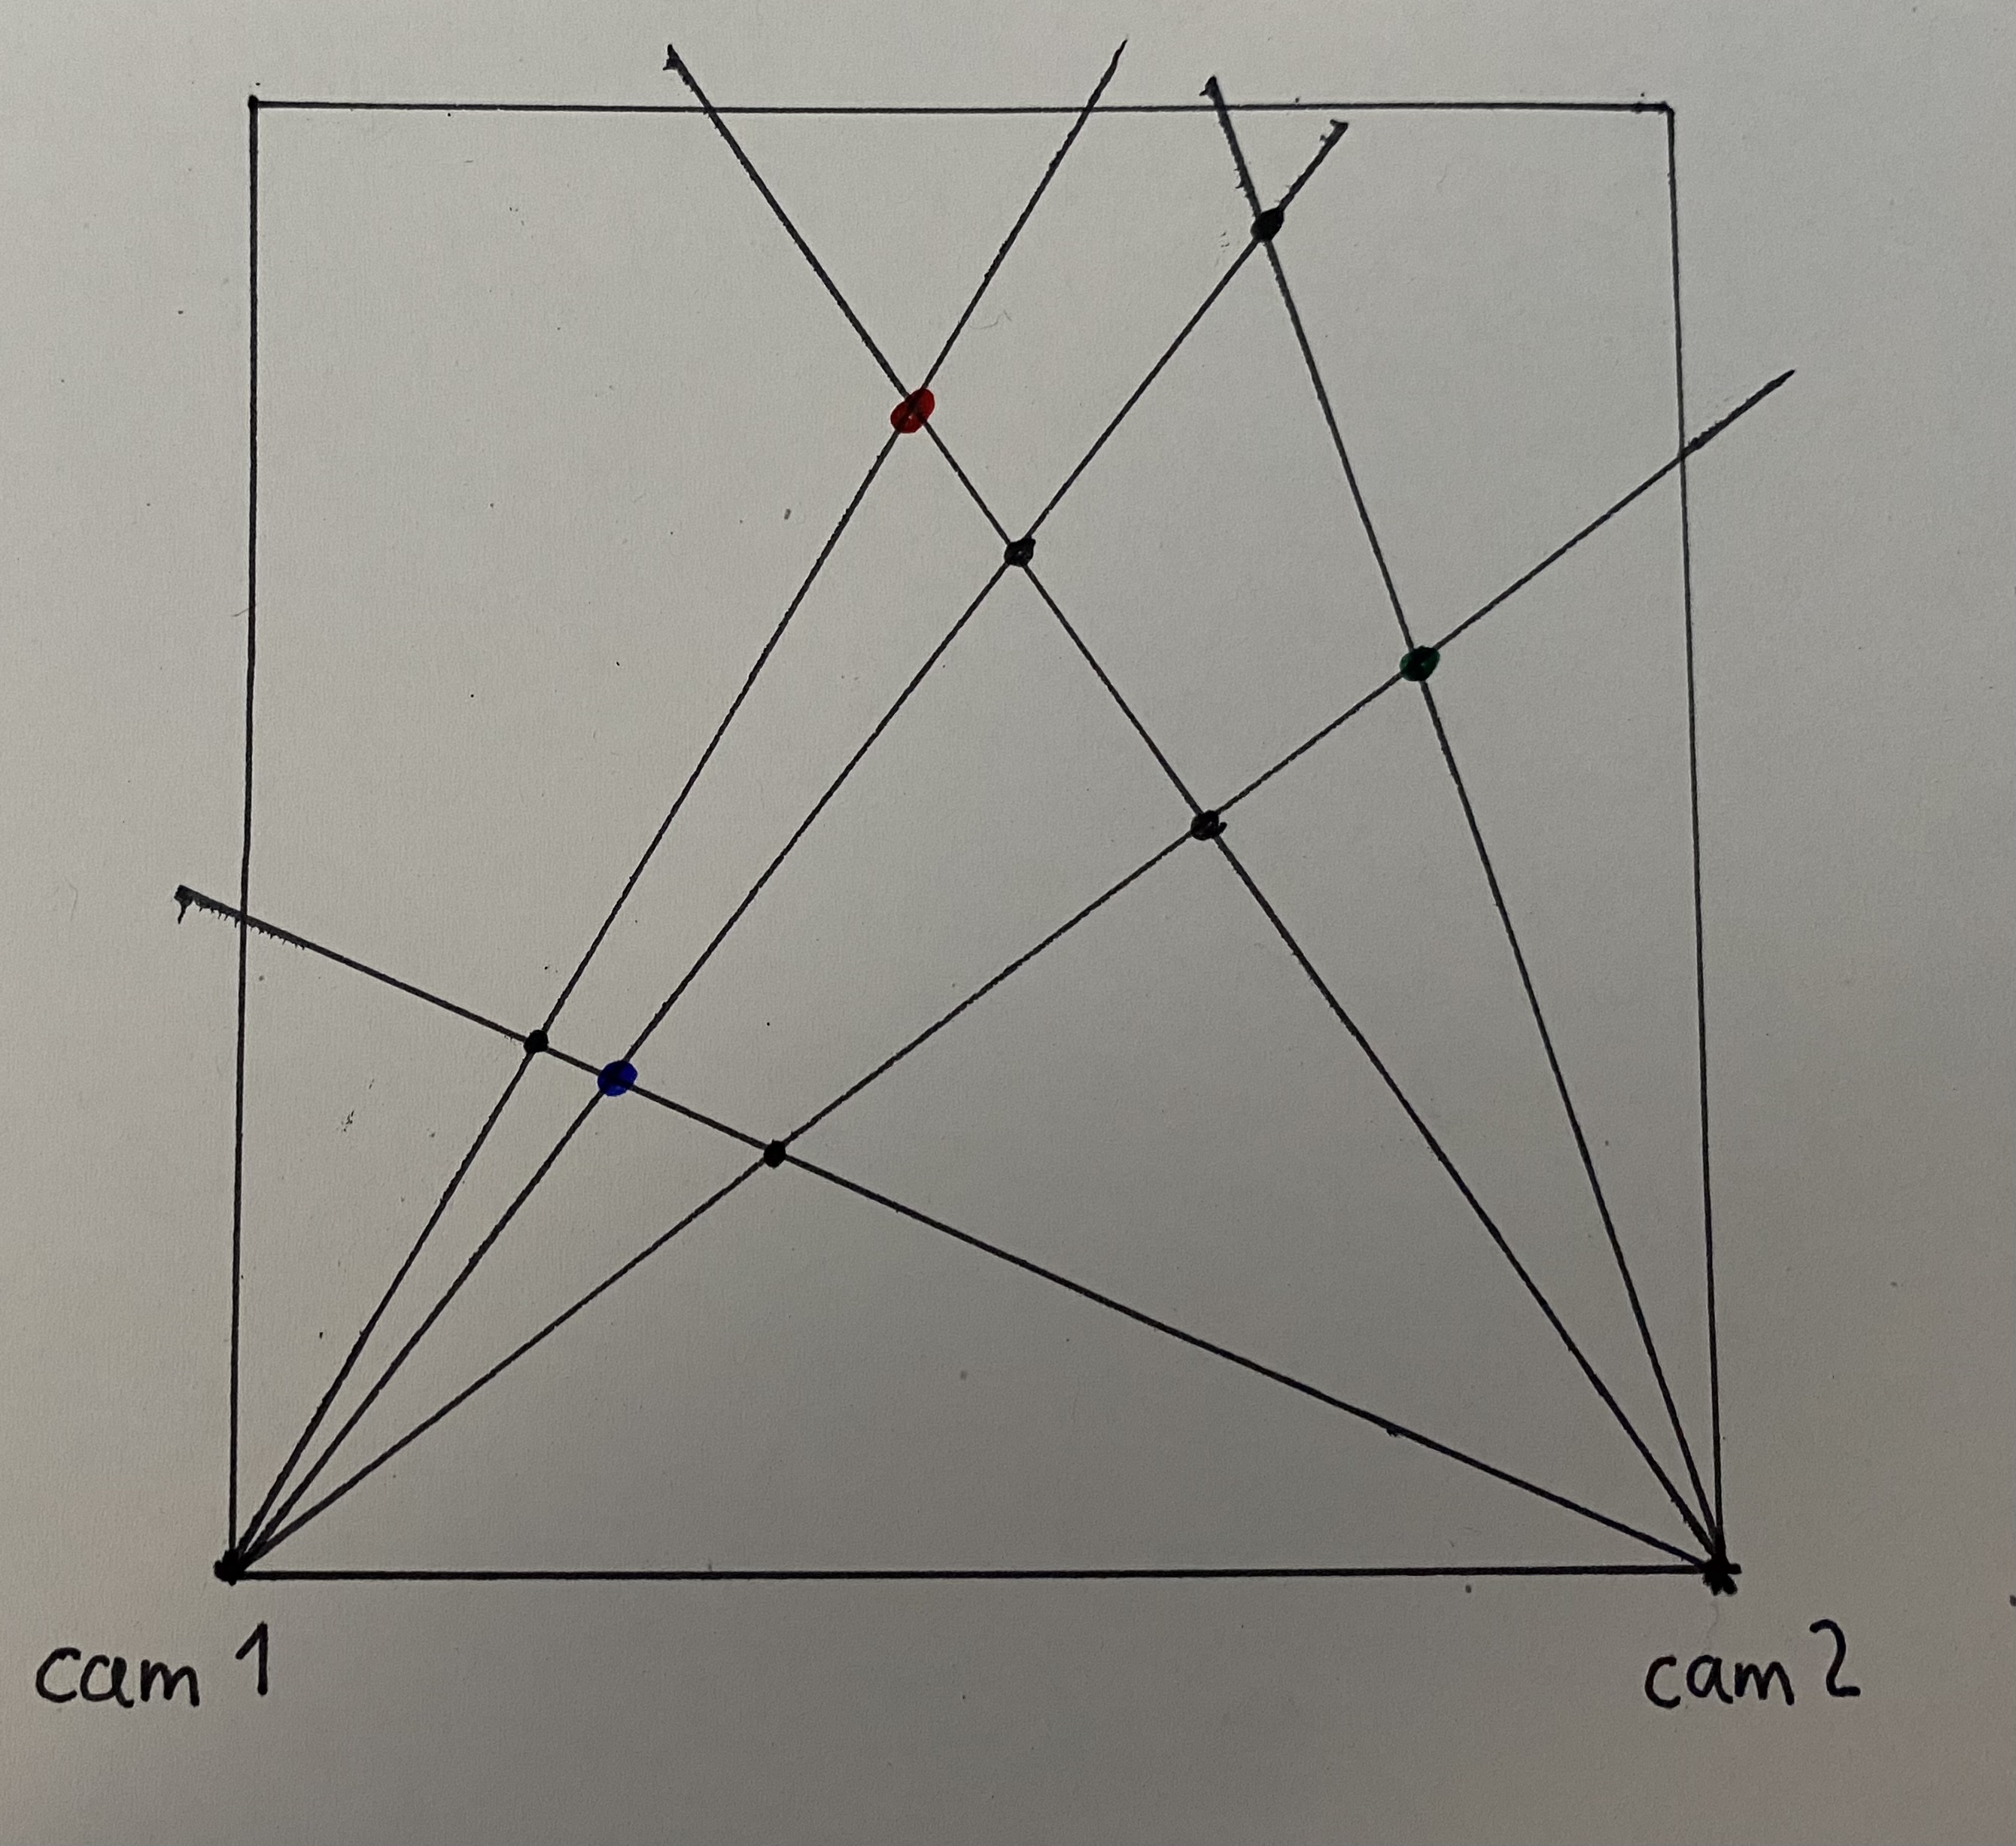 cam 1
cam 2